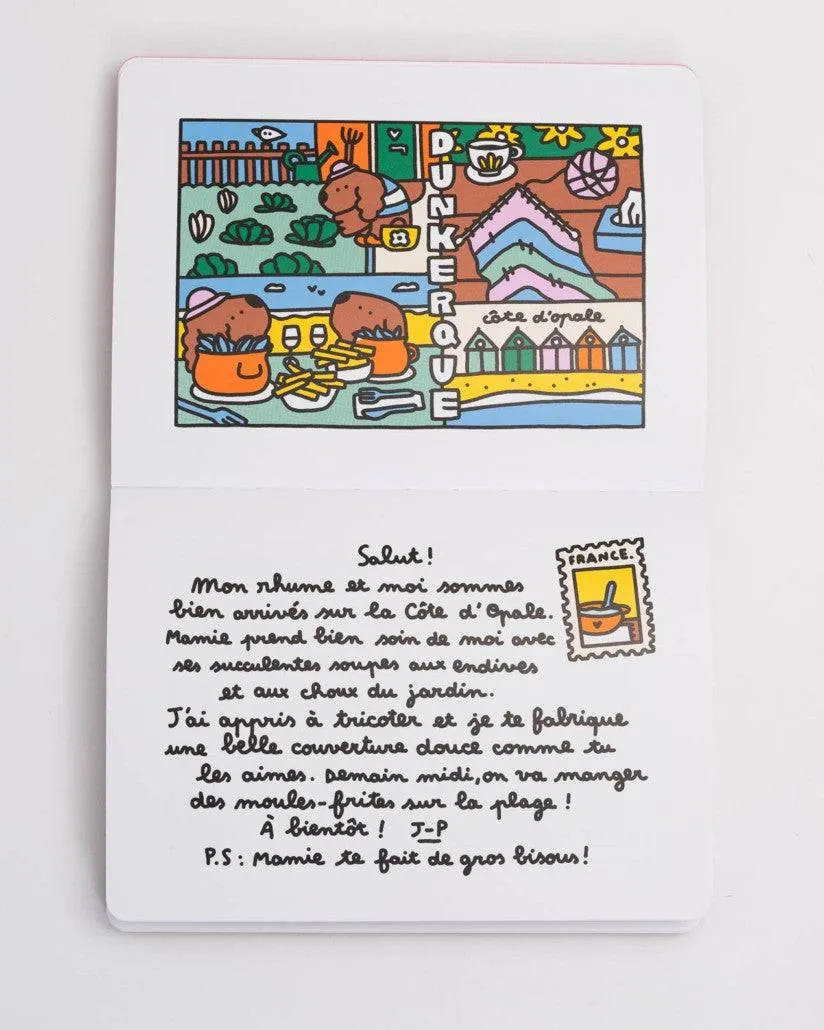 DUNKERQUE
côte d'opale
Salut!
FRANCE.
Mon rhume et moi sommes
bien arrivés sur la Côte d'Opale.
Mamie prend bien soin de moi avec
ses succulentes soupes aux endives
et aux choux du jardin.
J'ai appris à tricoter et je te fabrique
une belle couverture douce comme tu
les aimes. Demain midi, on va manger
des moules-frites sur la plage !
À bientôt ! J-P
P.S : Mamie te fait de gros bisous!